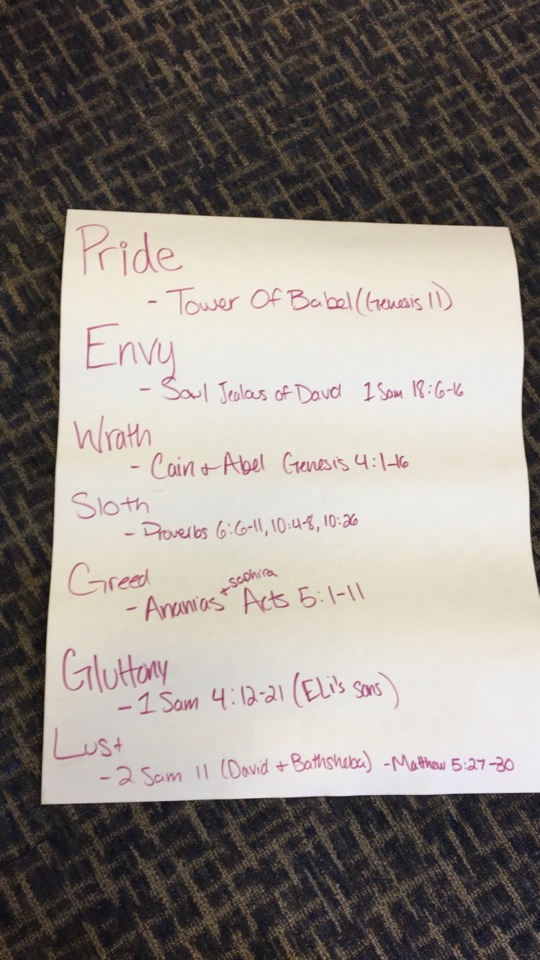 Pride
- Tower Of Babel (Genesis 11)
Envy
- Saul Jealous of David 1 Sam 18:6-16
Wrath
- Cain + Abel Genesis 4:1-16
Sloth
- Proverbs 6:6-11, 10:4-8, 10:26
Greed
- Ananias + saphira Acts 5:1-11
Gluttony
- 1 Sam 4:12-21 (ELi's sons)
Lust
- 2 Sam 11 (David + Bathsheba) - Matthew 5:27-30